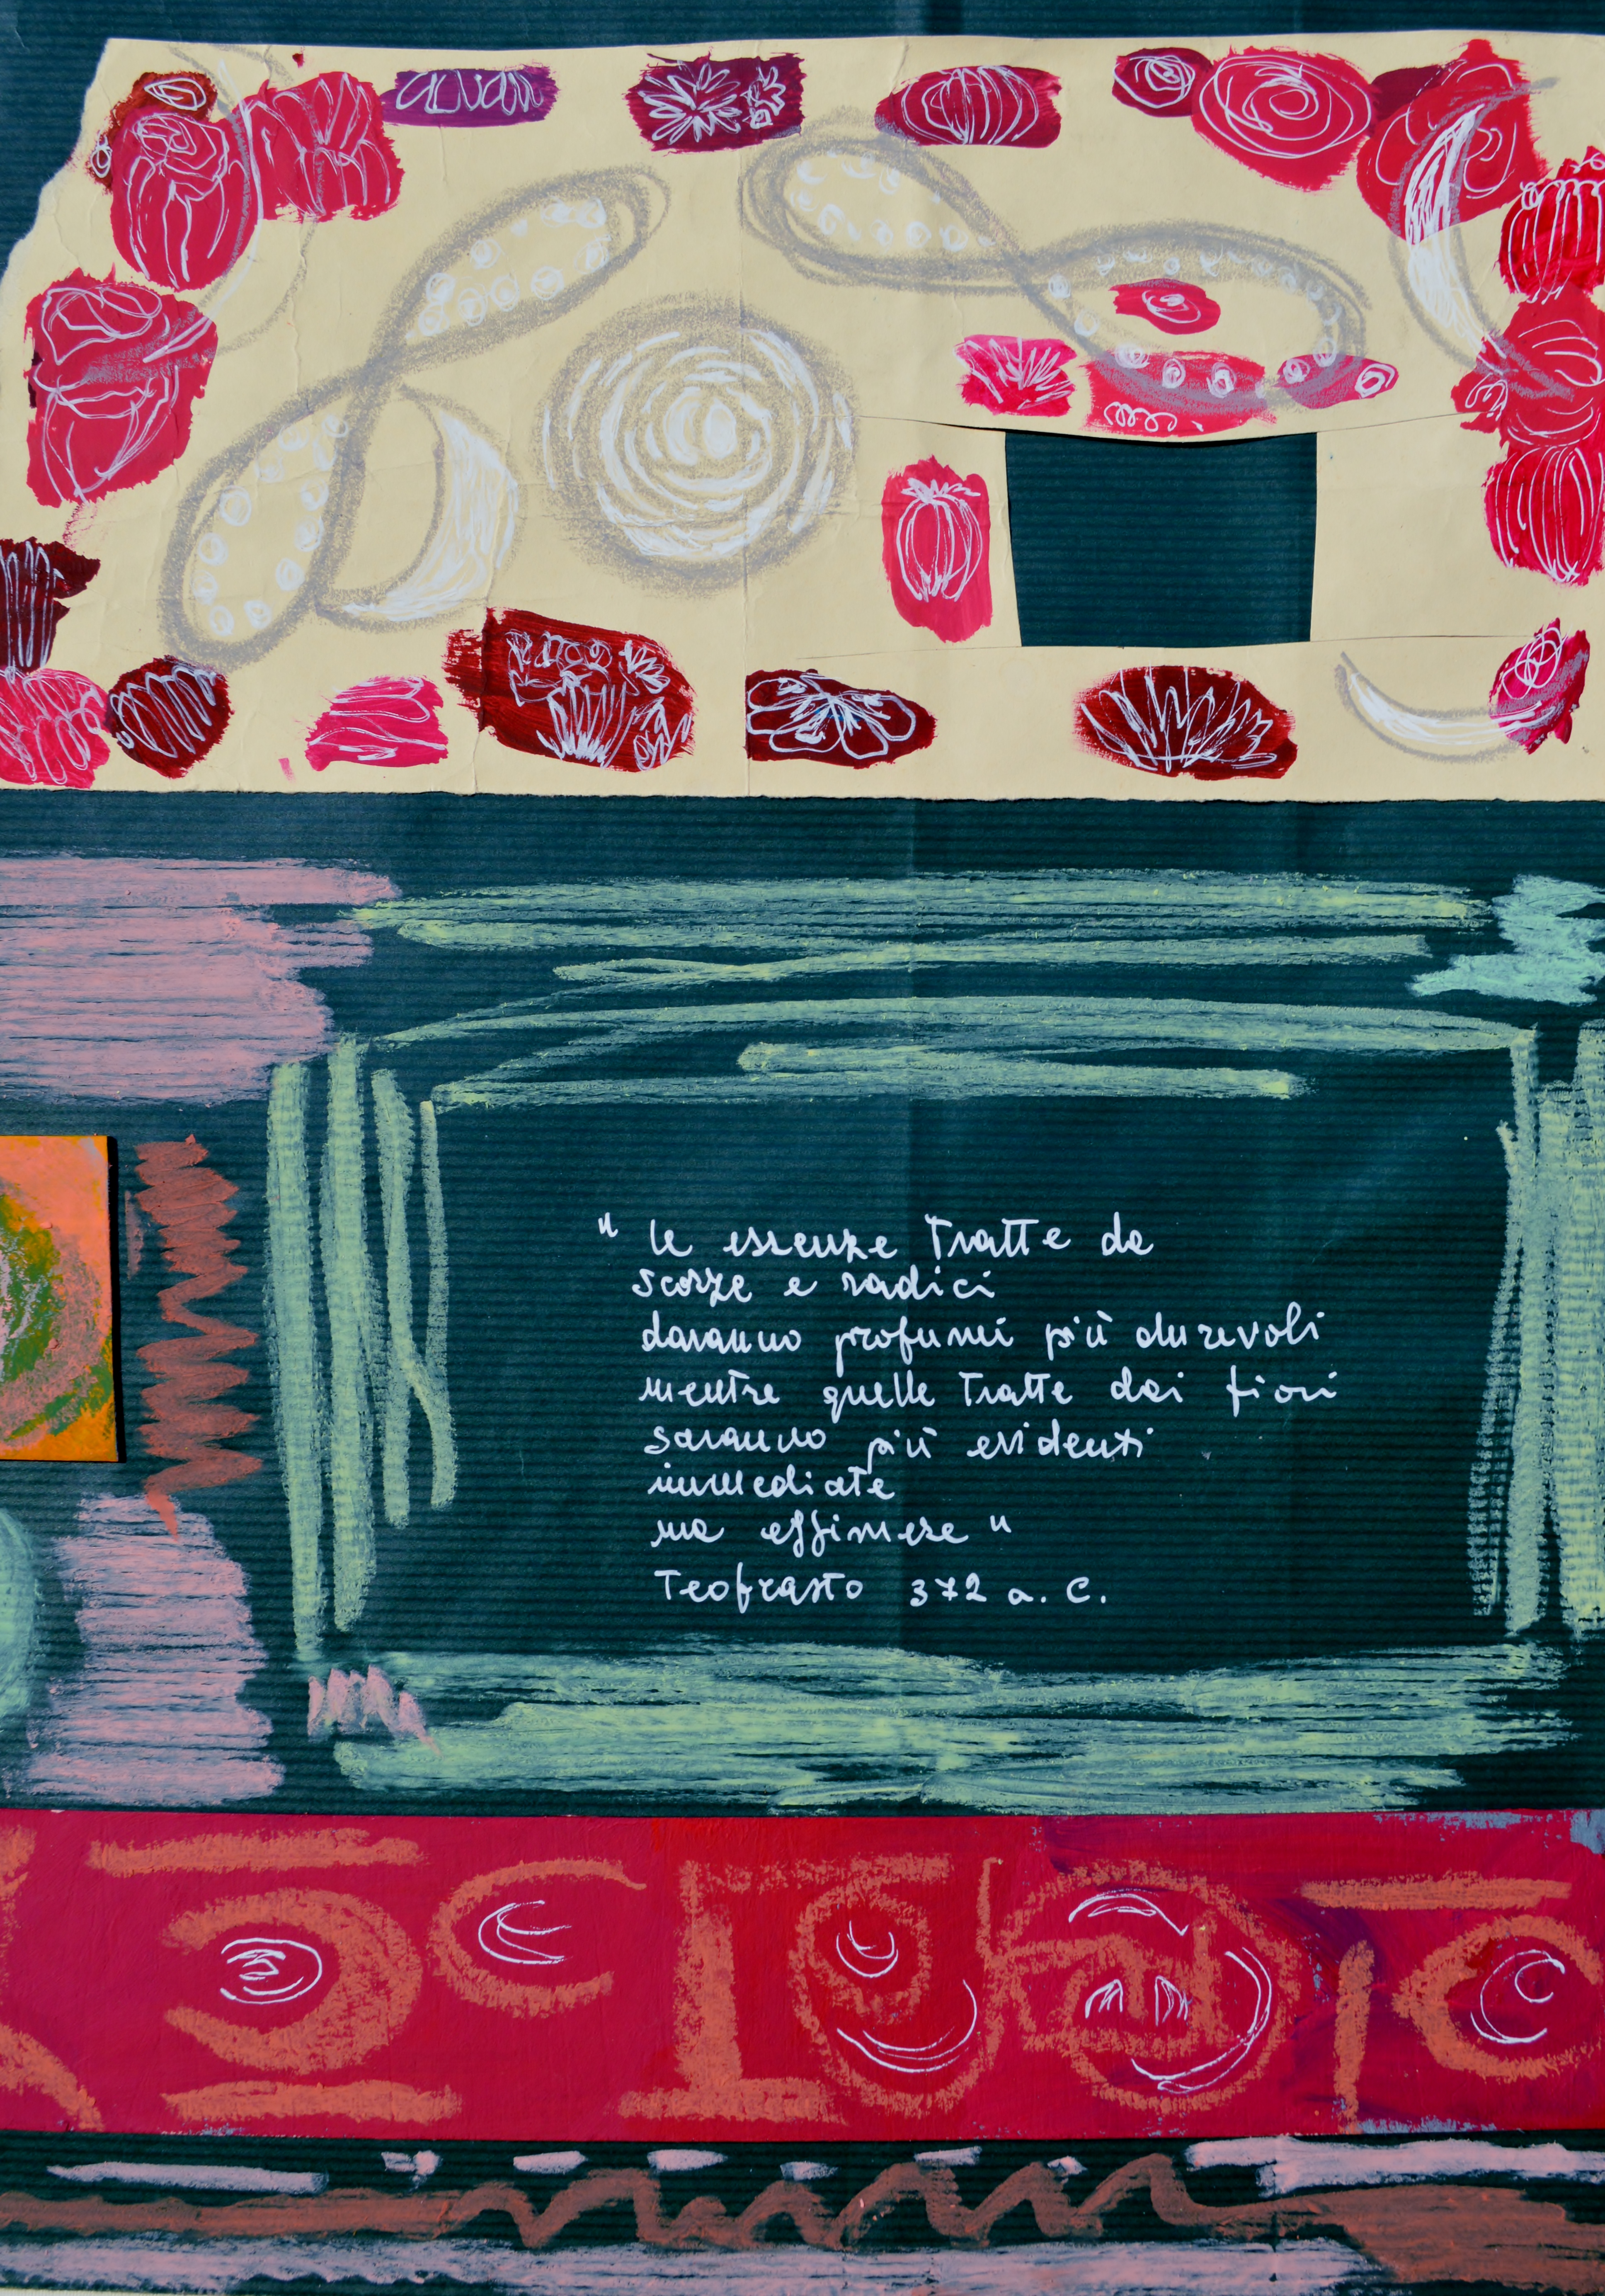 "le essenze tratte da
scorze e radici
daranno profumi più durevoli
mentre quelle tratte dai fiori
saranno più evidenti
immediate
ma effimere"
Teofrasto 372 a. C.